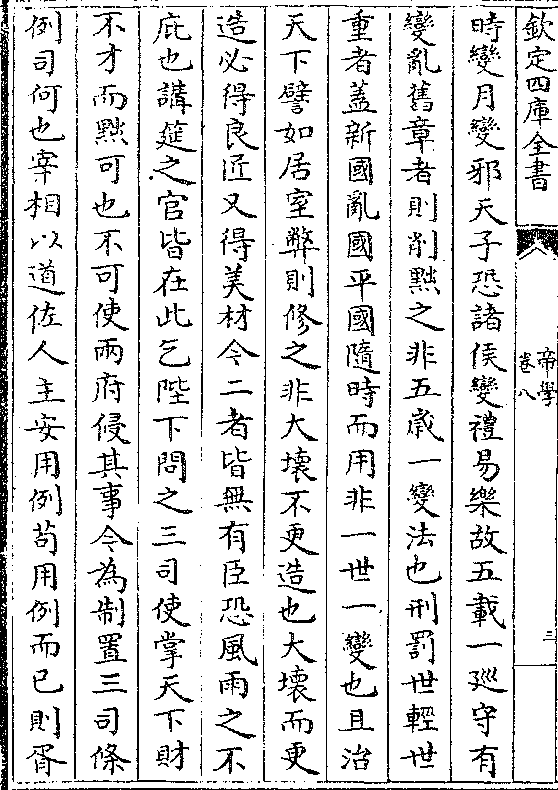 欽定四庫全書
帝學
卷八
三
時變月變邪天子恐諸侯變禮易樂故五載一廵守有
變亂舊章者則削黜之非五歲一變法也刑罰世輕世
重者蓋新國亂國平國隨時而用非一世一變也且治
天下譬如居室弊則修之非大壞不更造也大壞而更
造必得良匠又得美材今二者皆無有臣恐風雨之不
庇也講筵之官皆在此乞陛下問之三司使掌天下財
不才而黜可也不可使兩府侵其事今為制置三司條
例司何也宰相以道佐人主安用例苟用例而已則胥